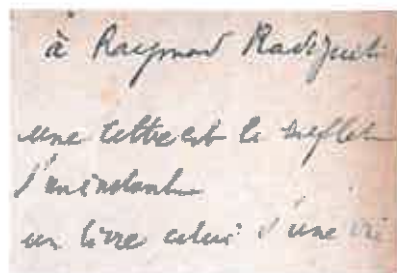 à Raymond Radiguet
une lettre est le reflet
d'un instant
un livre celui d'une vie